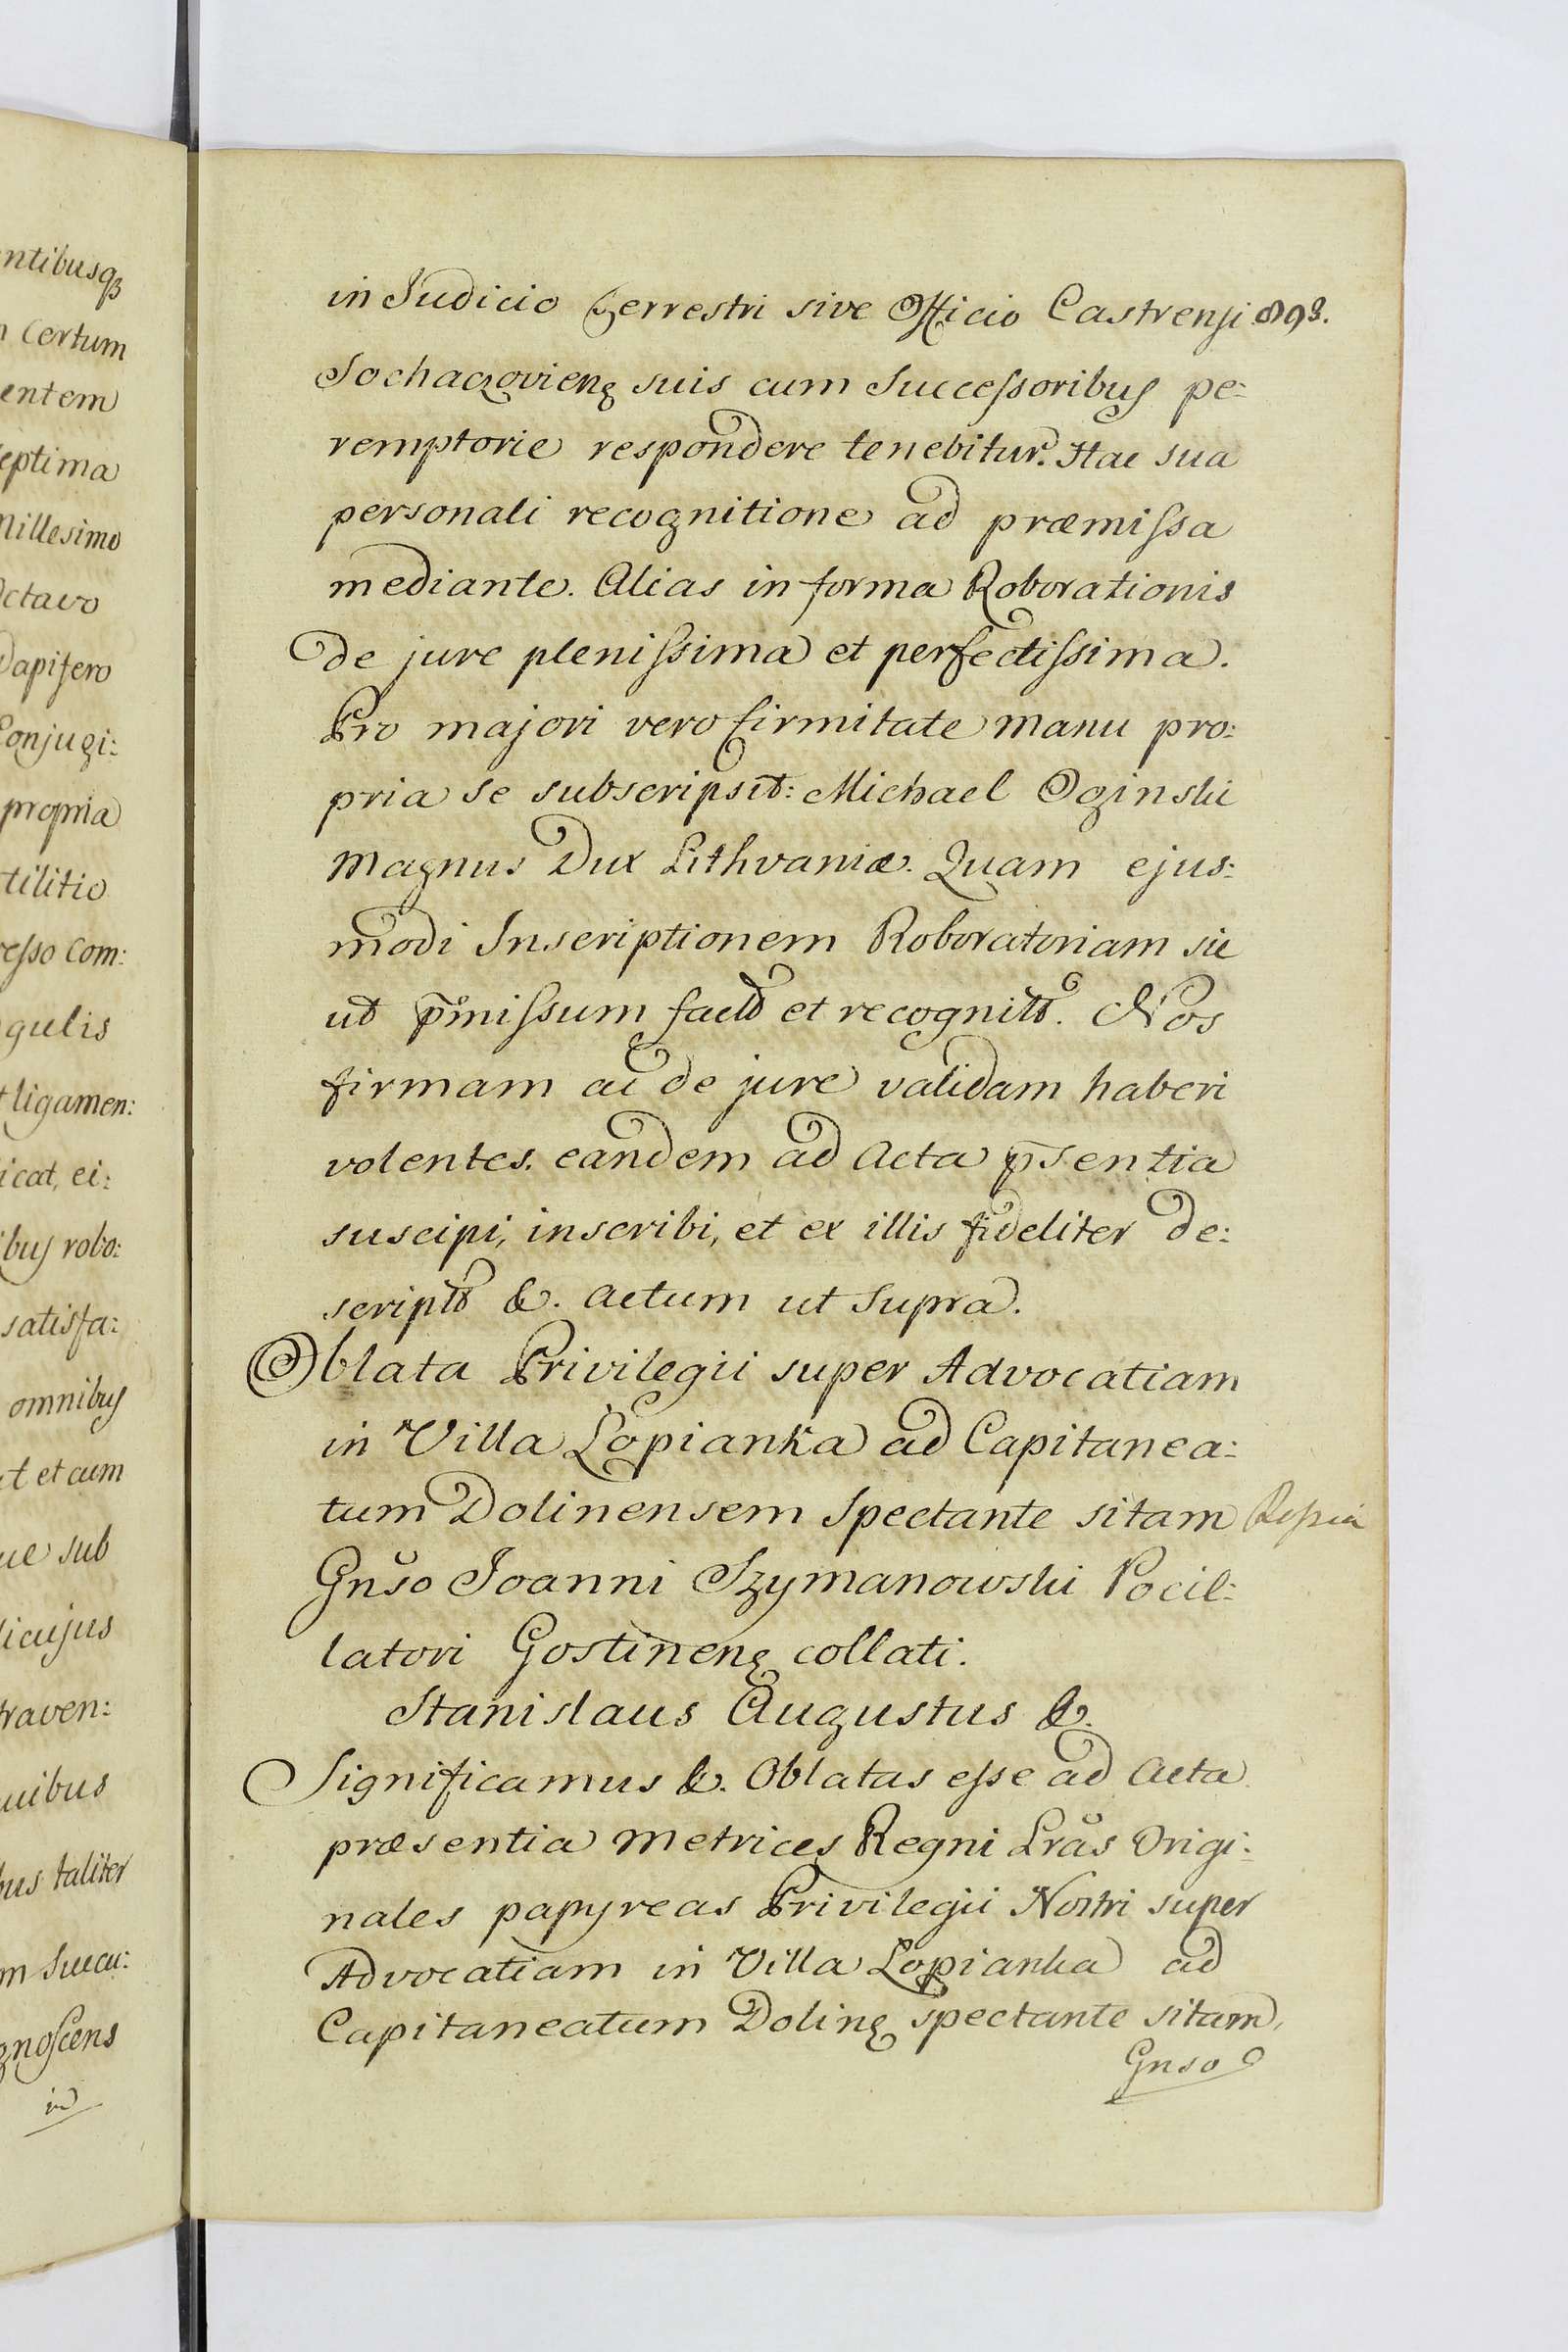 ntibusq3
certum
entem
eptima
Millesimo
octavo
Dapifero
Conjugi:
propria
tilitio
resso com:
gulis
ligamen:
icat, ei:
ibus robo:
satisfa:
omnibus
t et cum
ue sub
licujus
traven:
uibus
bus taliter
m succu:
gnoscens
in
in Judicio Terrestri sive Officio Castrensi 898.
Sochaczovien̄ suis cum Successoribus pe:
remptorie respondere tenebitur. Hac sua
personali recognitione ad præmissa
mediante. Alias in forma Roborationis
de jure plenissima et perfectissima.
Pro majori vero firmitate manu pro:
pria se subscripsit: Michael Oginski
Magnus Dux Lithvaniæ. Quam ejus:
modi Inscriptionem Roboratoriam sic
ut p̄missum fact̄ et recognit̄. Nos
firmam ac de jure validam haberi
volentes. eandem ad Acta p̄sentia
suscipi, inscribi, et ex illis fideliter de:
script̄ &. Actum ut Supra.
Oblata Privilegii super Advocatiam
in Villa Łopianka ad Capitanea:
tum Dolinensem Spectante sitam
Gnso Joanni Szymanowski Pocil:
latori Gostinen̄ collati.
Stanislaus Augustus &.
Significamus &. Oblatas esse ad Acta
præsentia Metrices Regni Lras Origi:
nales papyreas Privilegii Nostri super
Advocatiam in Villa Łopianka ad
Capitaneatum Dolin̄ spectante sitam,
Gnso